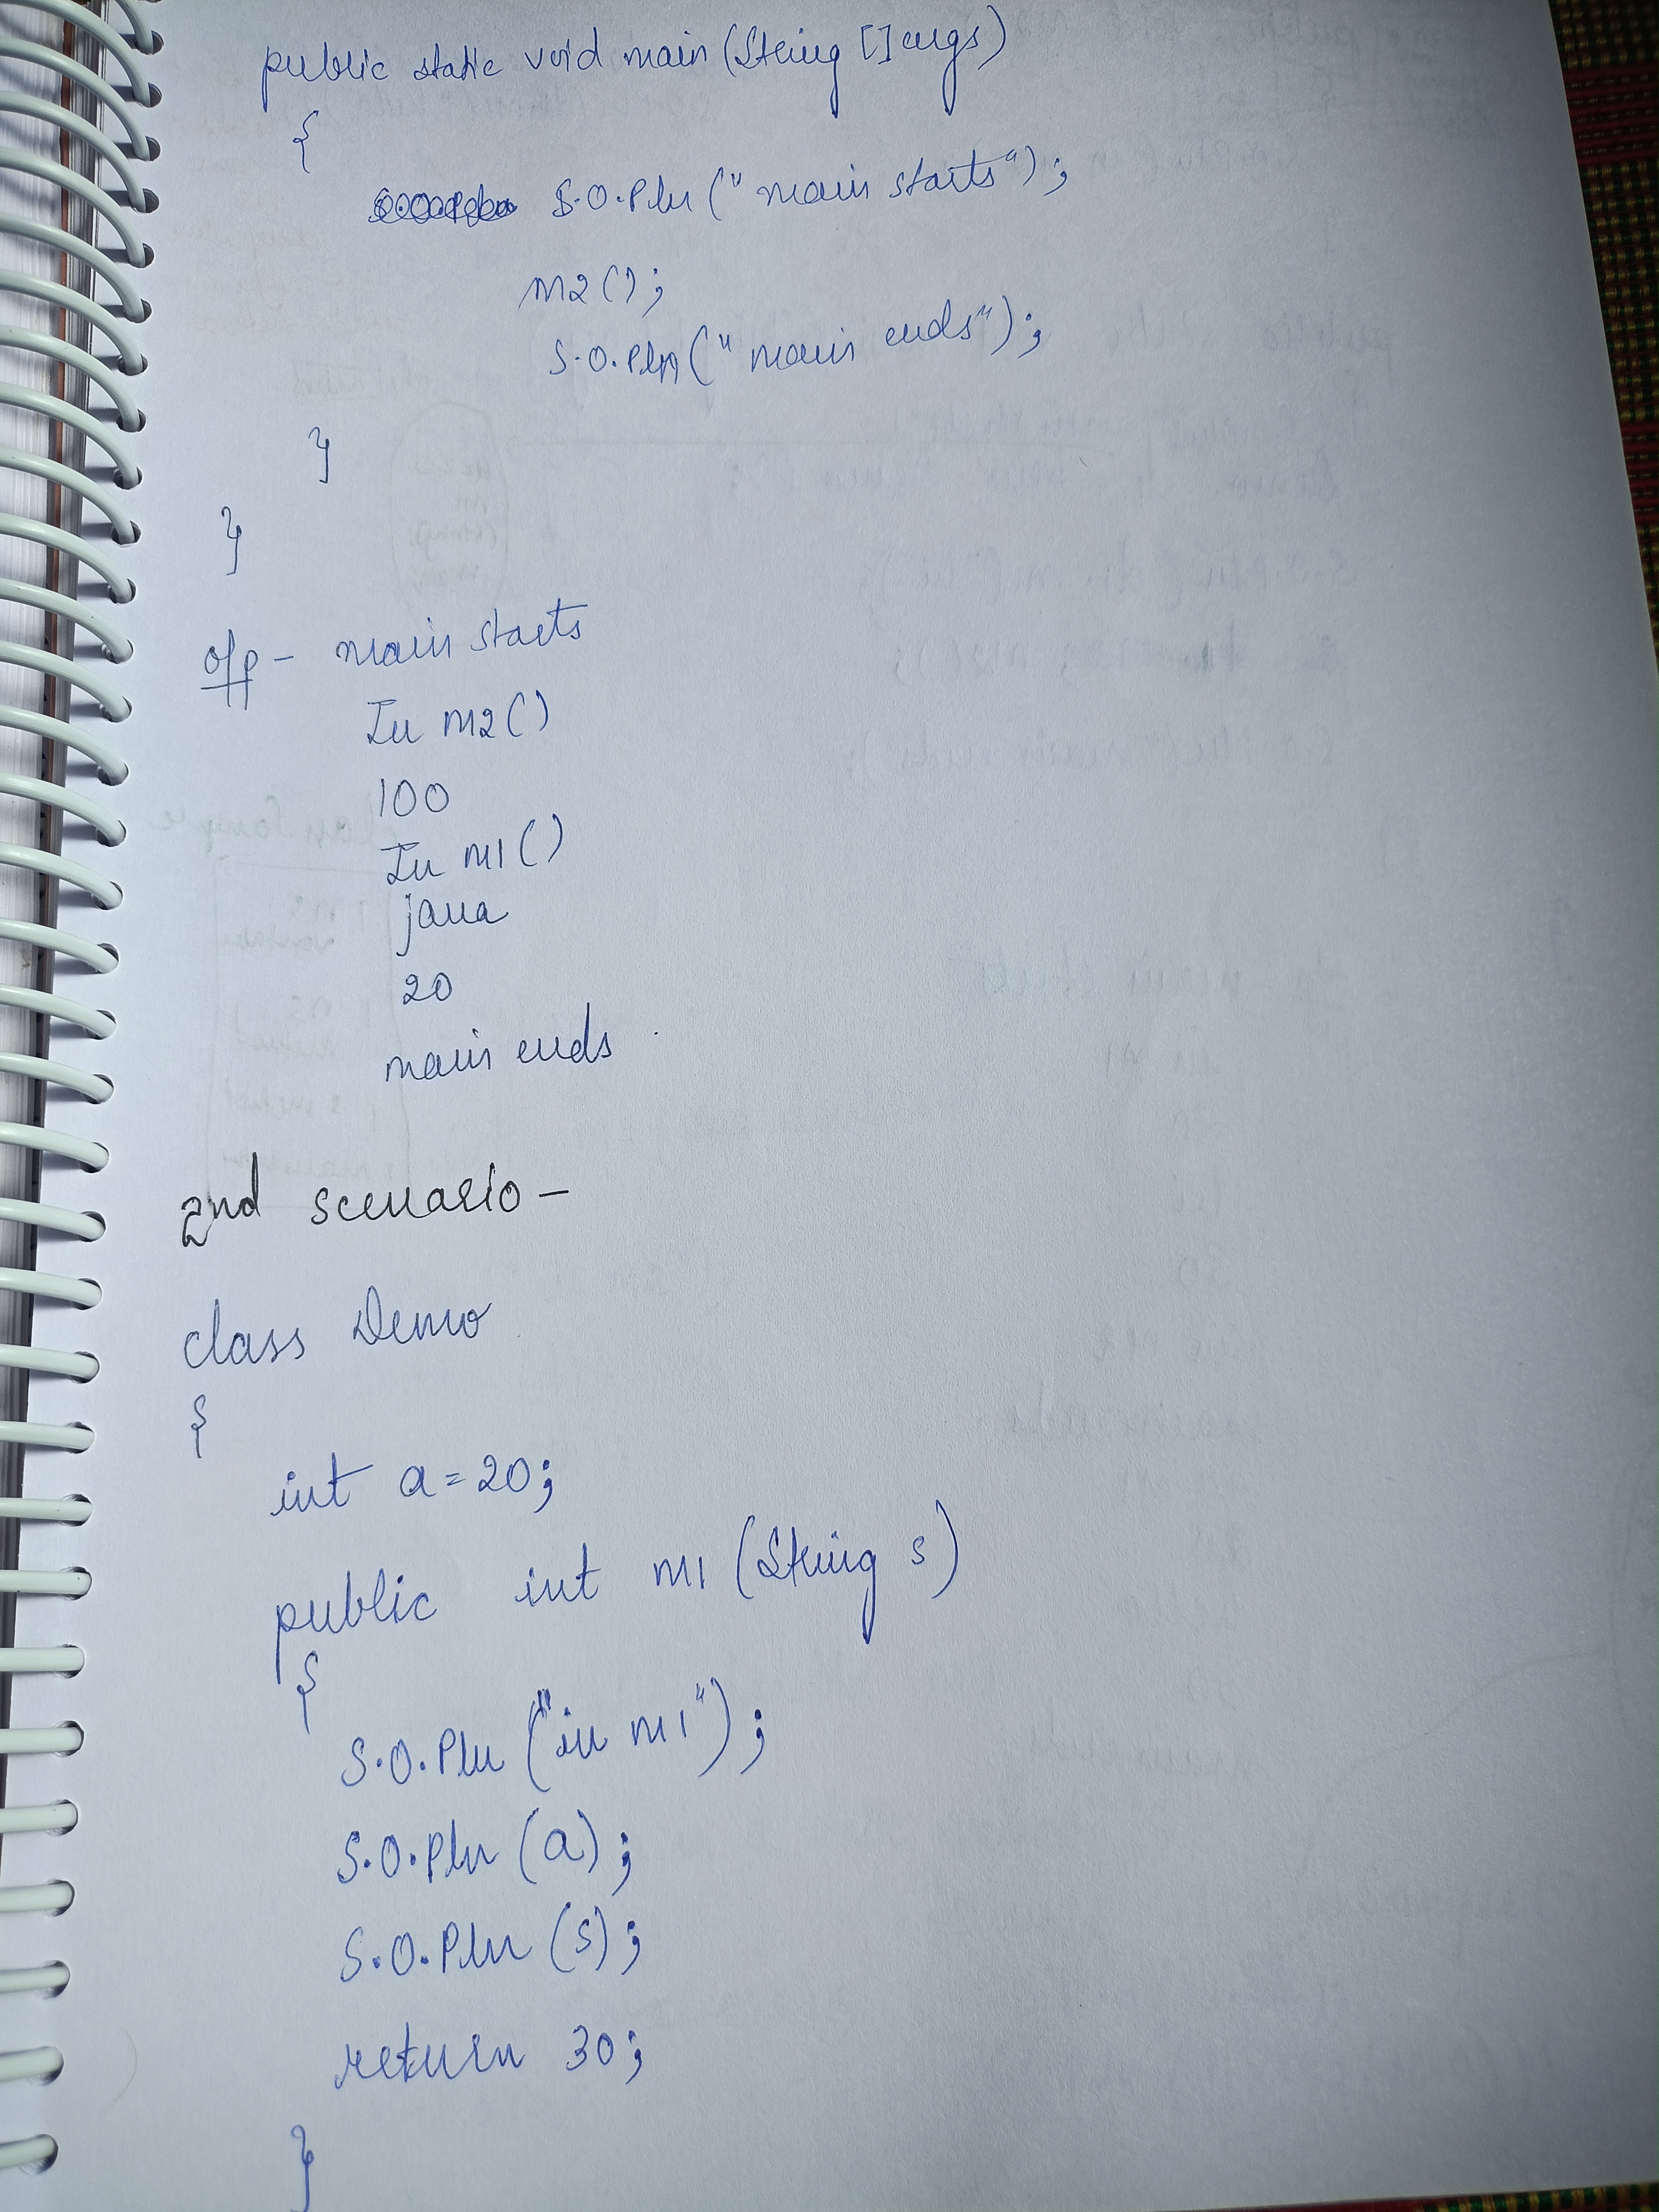 public static void main (String [] args)
{
S.O.Pln (" main starts");
m2 ();
S.O.Pln (" main ends");
}
}
o/p - main starts
In m2 ()
100
In m1 ()
java
20
main ends
2nd scenario -
class Demo
{
int a = 20;
public int m1 (String s)
{
S.O.Pln ("in m1");
S.O.Pln (a);
S.O.Pln (s);
return 30;
}